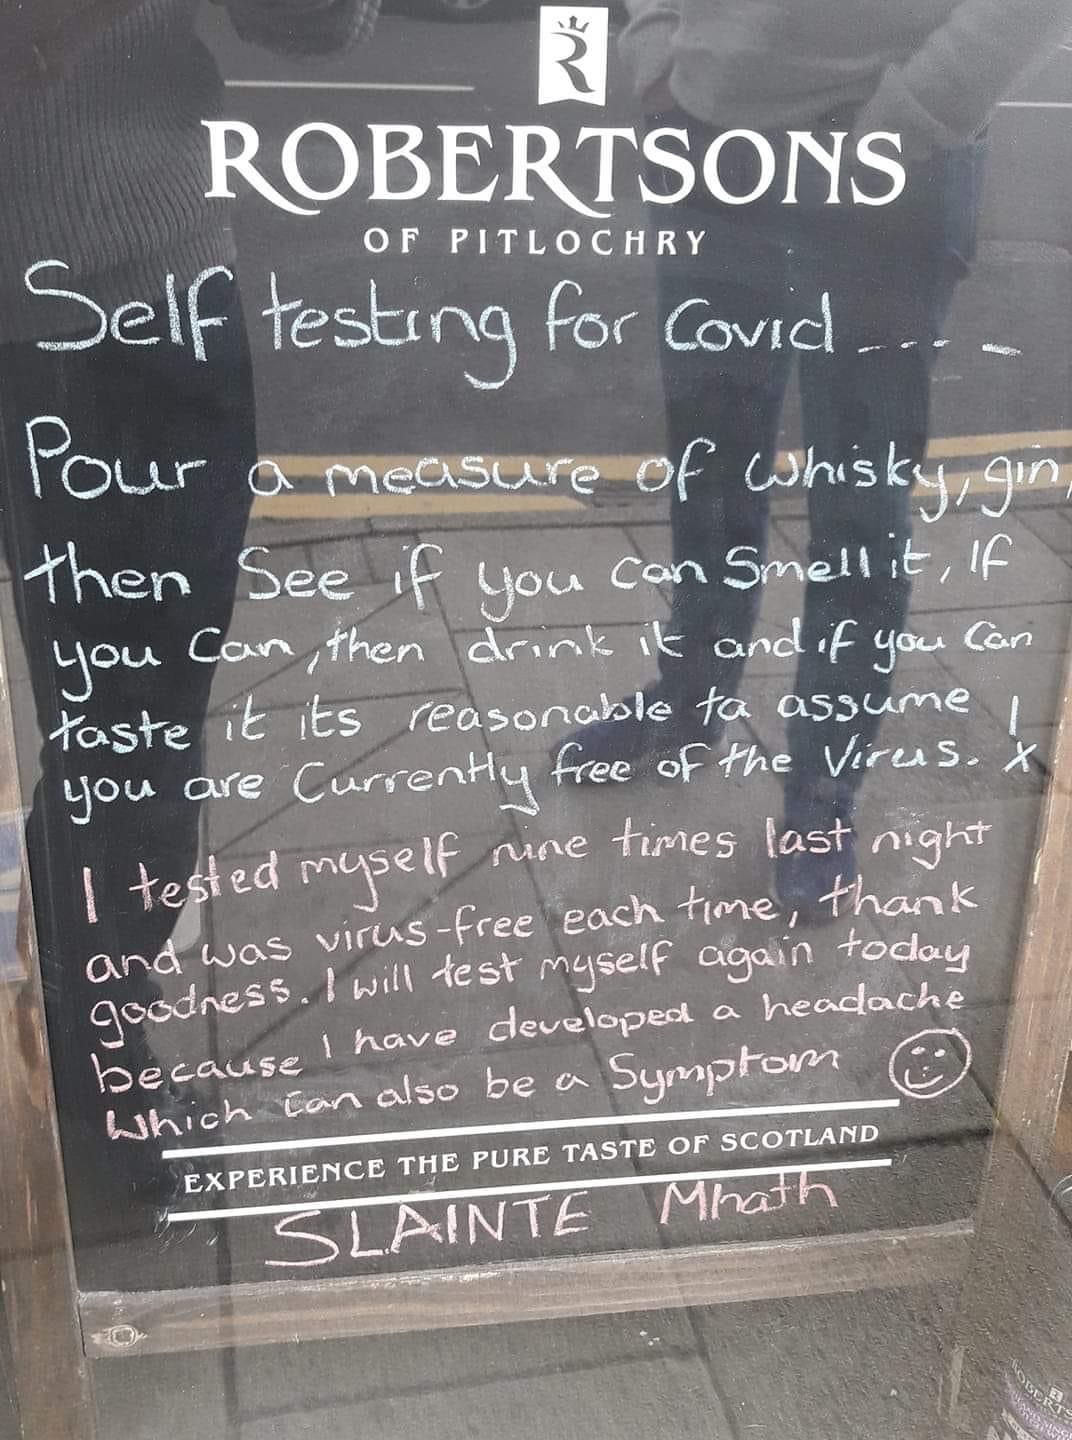 R
ROBERTSONS
OF PITLOCHRY
Self testing for Covid ----
Pour a measure of whisky, gin,
then See if you can Smell it, If
you Can, then drink it and if you Can
taste it its reasonable ta assume
you are Currently free of the Virus. ! x
I tested myself nine times last night
and was virus-free each time, thank
goodness. I will test myself again today
because I have developed a headache
Which can also be a Symptom
EXPERIENCE THE PURE TASTE OF SCOTLAND
SLAINTE Mhath